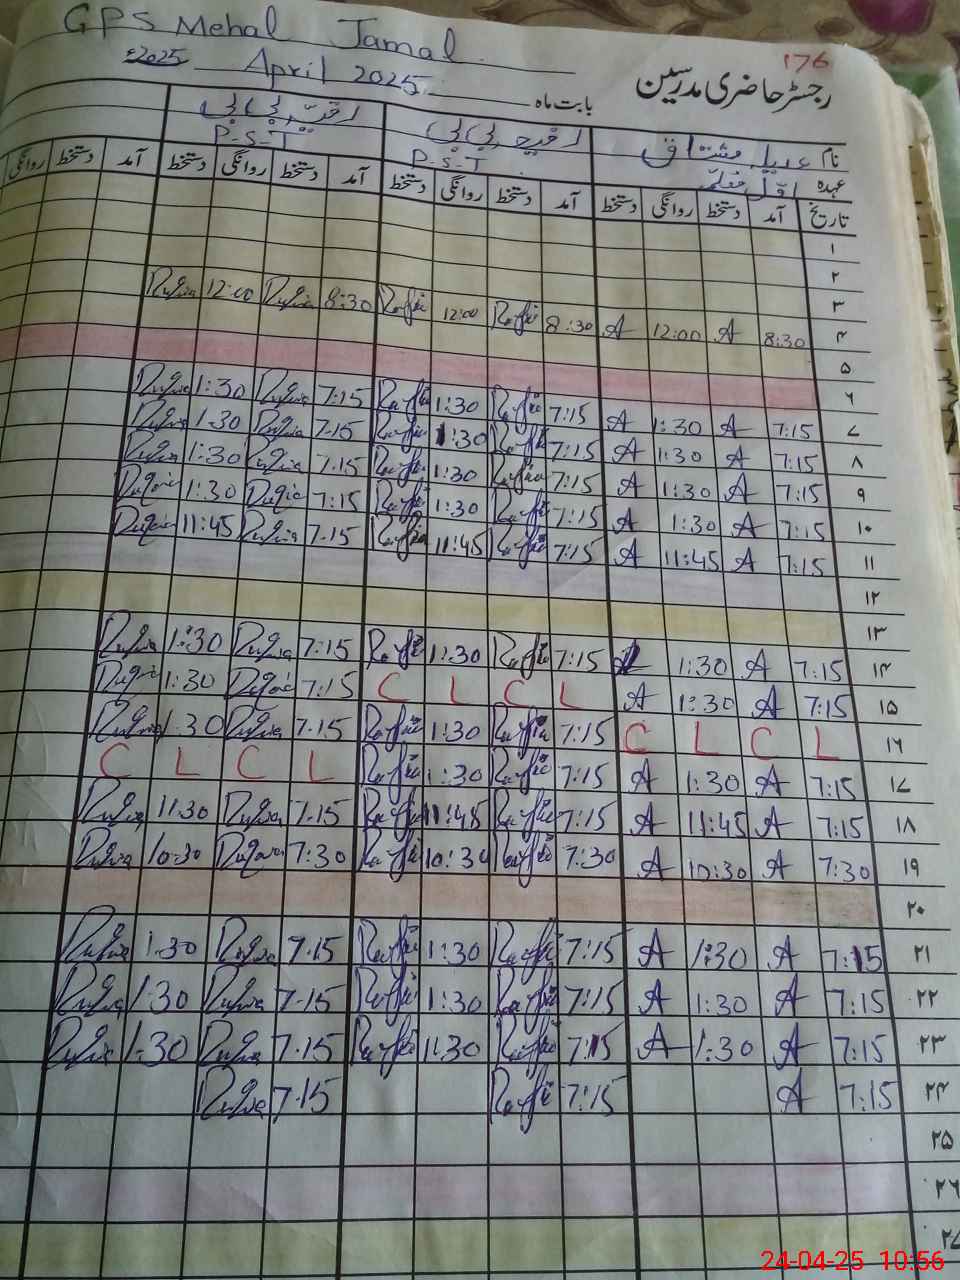 GPS Mehal Jamal
176
رجسٹر حاضری مدرسین
بابت ماہ April 2025 ء2025
نام مشتاق بی بی بی بی
عہدہ اول معلمہ P.S.T P.S.T
تاریخ آمد دستخط روانگی دستخط آمد دستخط روانگی دستخط آمد دستخط روانگی دستخط آمد دستخط روانگی
۱
۲
۳
۴ 8:30 A 12:00 A 8:30 Rafia 12:00 Rafia 8:30 Ruqia 12:00 Ruqia
۵
۶
۷ 7:15 A 1:30 A 7:15 Rafia 1:30 Rafia 7:15 Ruqia 1:30 Ruqia
۸ 7:15 A 1:30 A 7:15 Rafia 1:30 Rafia 7.15 Ruqia 1.30 Ruqia
۹ 7:15 A 1:30 A 7:15 Rafia 1:30 Rafia 7.15 Ruqia 1:30 Ruqia
۱۰ 7:15 A 1:30 A 7:15 Rafia 1:30 Rafia 7:15 Ruqia 1:30 Ruqia
۱۱ 7:15 A 11:45 A 7:15 Rafia 11:45 Rafia 7.15 Ruqia 11:45 Ruqia
۱۲
۱۳
۱۴ 7:15 A 1:30 A 7:15 Rafia 1:30 Rafia 7:15 Ruqia 1:30 Ruqia
۱۵ 7:15 A 1:30 A L C L C 7:15 Ruqia 1:30 Ruqia
۱۶ L C L C 7:15 Rafia 1:30 Rafia 7.15 Ruqia 1.30 Ruqia
۱۷ 7:15 A 1:30 A 7:15 Rafia 1:30 Rafia L C L C
۱۸ 7:15 A 11:45 A 7:15 Rafia 11:45 Rafia 7.15 Ruqia 11.30 Ruqia
۱۹ 7:30 A 10:30 A 7:30 Rafia 10:30 Rafia 7:30 Ruqia 10:30 Ruqia
۲۰
۲۱ 7:15 A 1:30 A 7:15 Rafia 1:30 Rafia 7.15 Ruqia 1.30 Ruqia
۲۲ 7:15 A 1:30 A 7:15 Rafia 1:30 Rafia 7.15 Ruqia 1.30 Ruqia
۲۳ 7:15 A 1:30 A 7:15 Rafia 1:30 Rafia 7.15 Ruqia 1.30 Ruqia
۲۴ 7:15 A 7:15 Rafia 7.15 Ruqia
۲۵
۲۶
۲۷
24-04-25 10:56